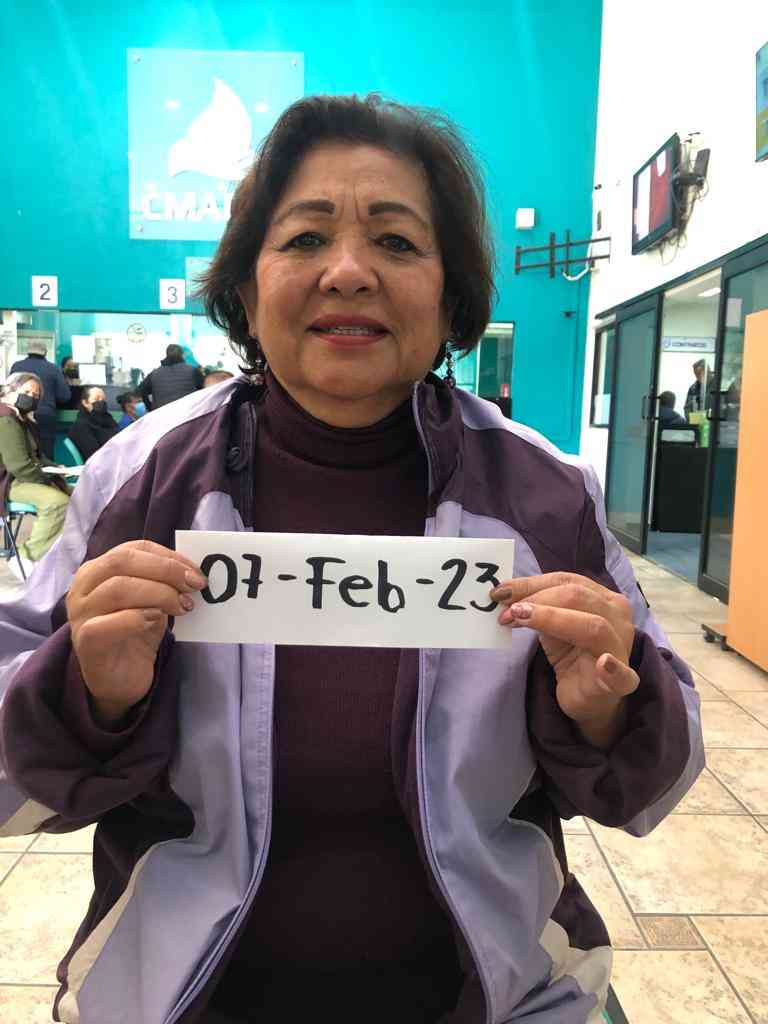 2
3
CONTRATOS
07-Feb-23